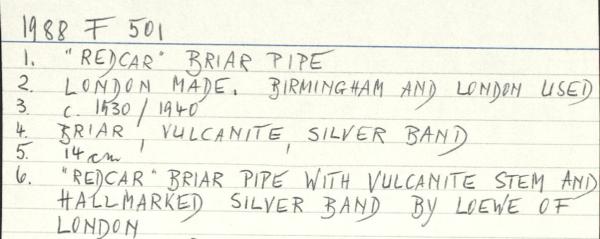 1988 F 501
1. "REDCAR" BRIAR PIPE
2. LONDON MADE. BIRMINGHAM AND LONDON USED
3 c. 1930 / 1940
4. BRIAR, VULCANITE, SILVER BAND
5. 14 cm
6. "REDCAR" BRIAR PIPE WITH VULCANITE STEM AND
HALLMARKED SILVER BAND BY LOEWE OF
LONDON